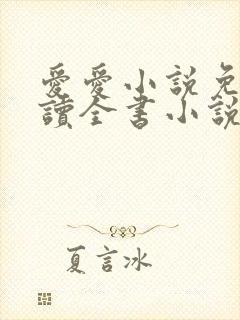 愛愛小說免
讀全書小說
夏言冰